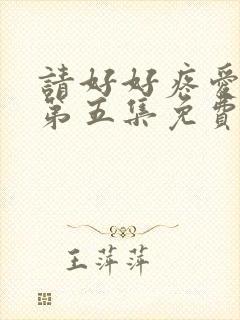 請好好疼愛
第五集免費
王萍萍